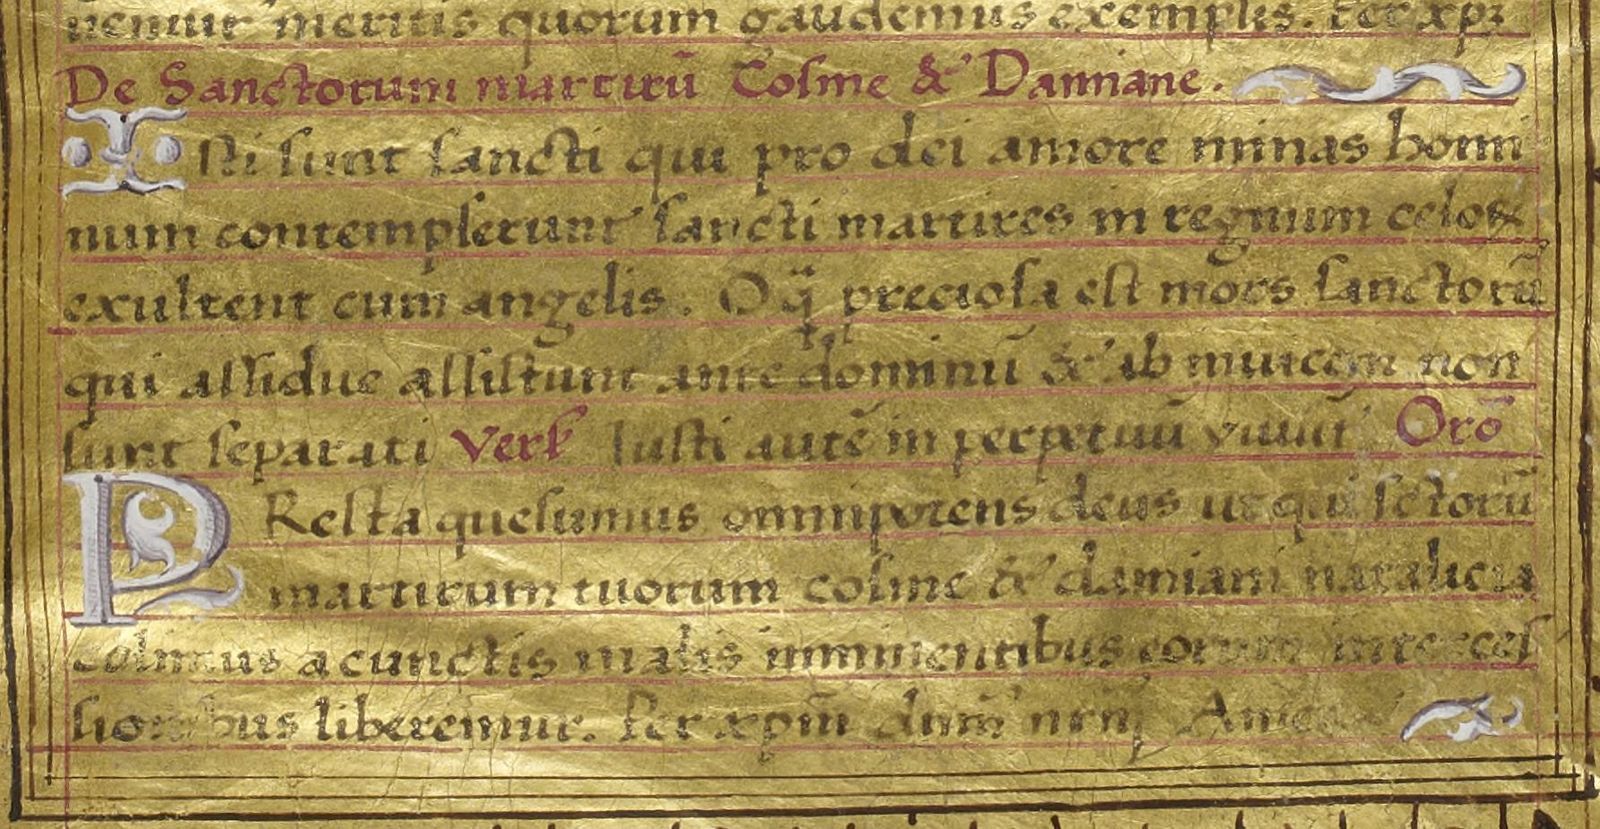 ueniur meritis quorum gaudemus exemplis. Per xpȝ
De Sanctorum martirū Cosme & Damiane.
Isti sunt sancti qui pro dei amore minas homi
num contempserunt sancti martires in regnum celoꝝ
exultent cum angelis. O q̄ preciosa est mors sanctorū
qui assidue assistunt ante dominū & ab inuicem non
sunt separati Vers Iusti autē in perpetuū viuūt Orō
PResta quesumus omnipotens deus ut qui sctorū
martirum tuorum cosme & damiani natalicia
colimus a cunctis malis imminentibus eorum interces
sionibus liberemur. Per xpm̄ dnm̄ nrm̄ Amen